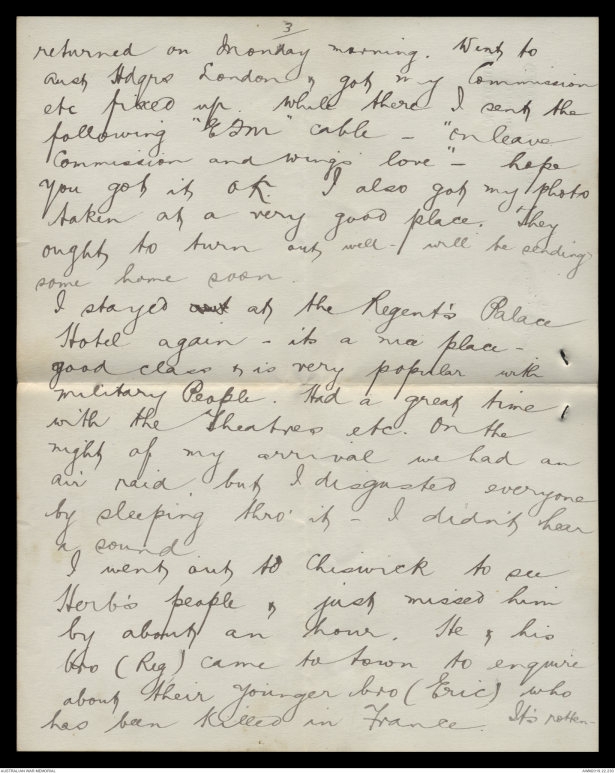 3
returned on Monday morning. Went to
Aust Hdqrs London & got my Commission
etc fixed up. While there I sent the
following "EFM" cable – "On leave
Commission and wings love" – hope
you got it OK. I also got my photo
taken at a very good place. They
ought to turn out well – will be sending
some home soon.
I stayed at the Regent's Palace
Hotel again – its a nice place –
good class & is very popular with
military People. Had a great time
with the Theatres etc. On the
night of my arrival we had an
air raid but I disgusted everyone
by sleeping thro' it – I didn't hear
a sound
I went out to Chiswick to see
Herb's people & just missed him
by about an hour. He & his
bro (Reg) came to town to enquire
about their younger bro (Eric) who
has been killed in France. It's rotten –
AUSTRALIAN WAR MEMORIAL